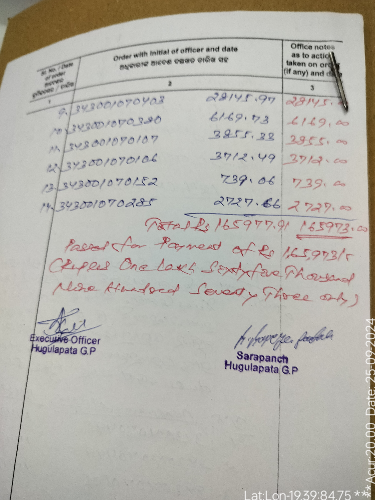 Sl. No. / Date of order
Order with Initial of officer and date
ଅଧିକାରୀଙ୍କ
Office notes as to action taken on order (if any) and
1 2 3
9. 343001070403 28145.97 28145.
10. 343001070320 6169.73 6169.00
11. 343001070107 3855.33 3855.00
12. 343001070106 3712.49 3712.00
13. 343001070152 739.06 739.00
14. 343001070285 2727.66 2727.00
Total Rs 165977.91 165973.00
Passed for Payment of Rs 165973/-
(Rupees One Lakh Sixty five Thousand
Nine Hundred Seventy Three only)
Executive Officer
Hugulapata G.P
Sarapanch
Hugulapata G.P
Lat:Lon-19.39:84.75 *** Acur:20.00, Date, 25-09-2024